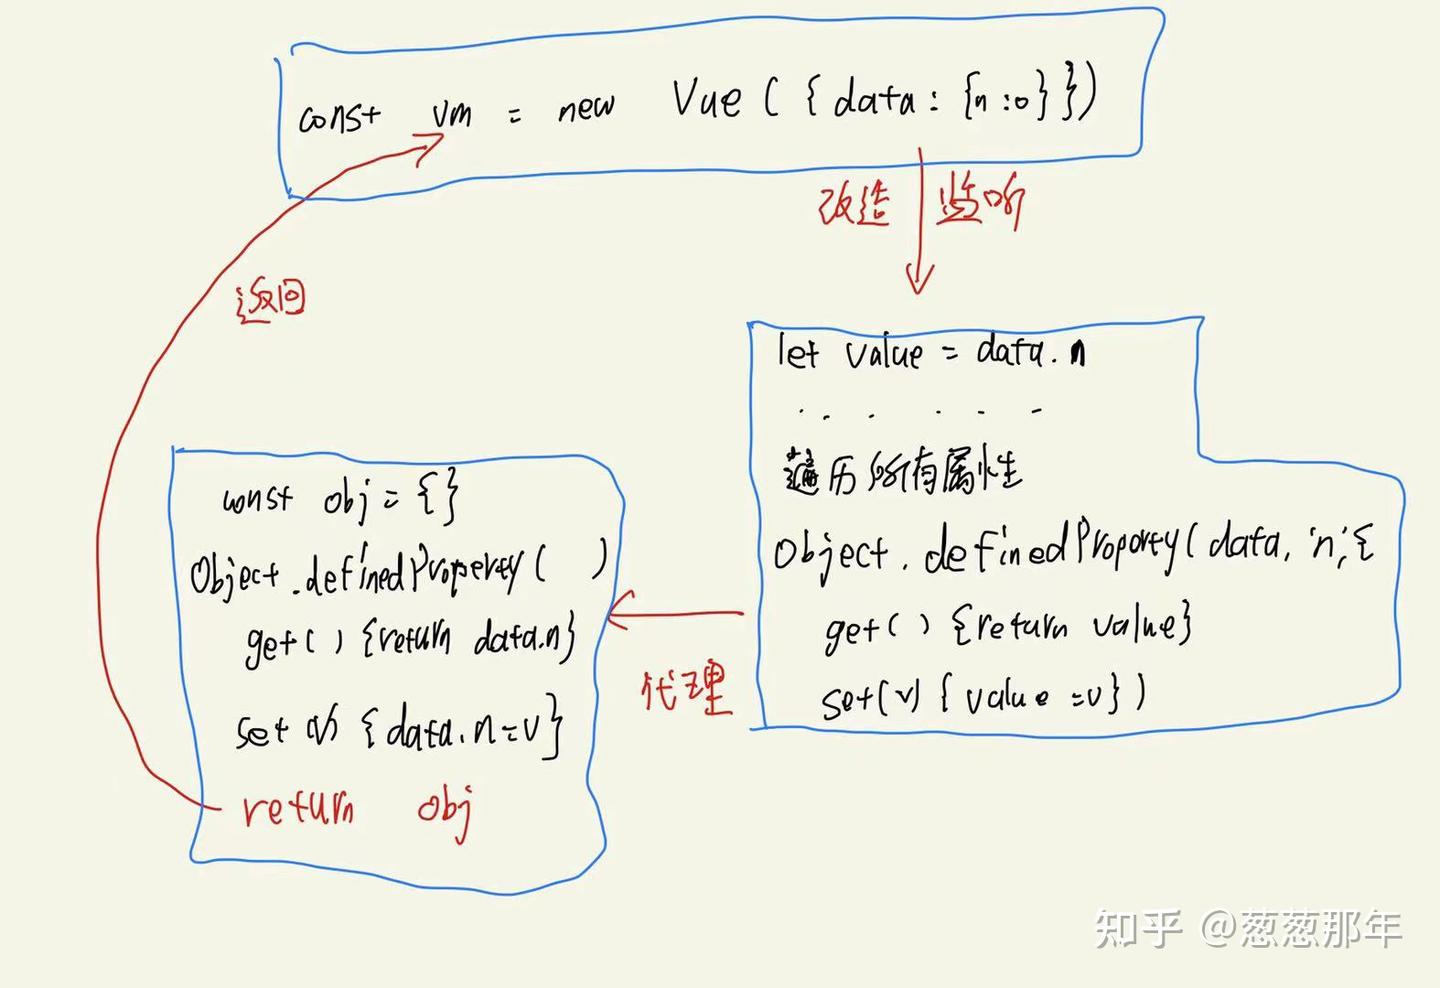 const vm = new Vue({data:{n:0}})
改造 监听
返回
let value = data.n
......
遍历所有属性
Object.definedProporty(data,'n',{
get(){return value}
set(v){value=v})
代理
const obj={}
Object.definedProperty( )
get(){return data.n}
set(v){data.n=v}
return obj
知乎 @葱葱那年